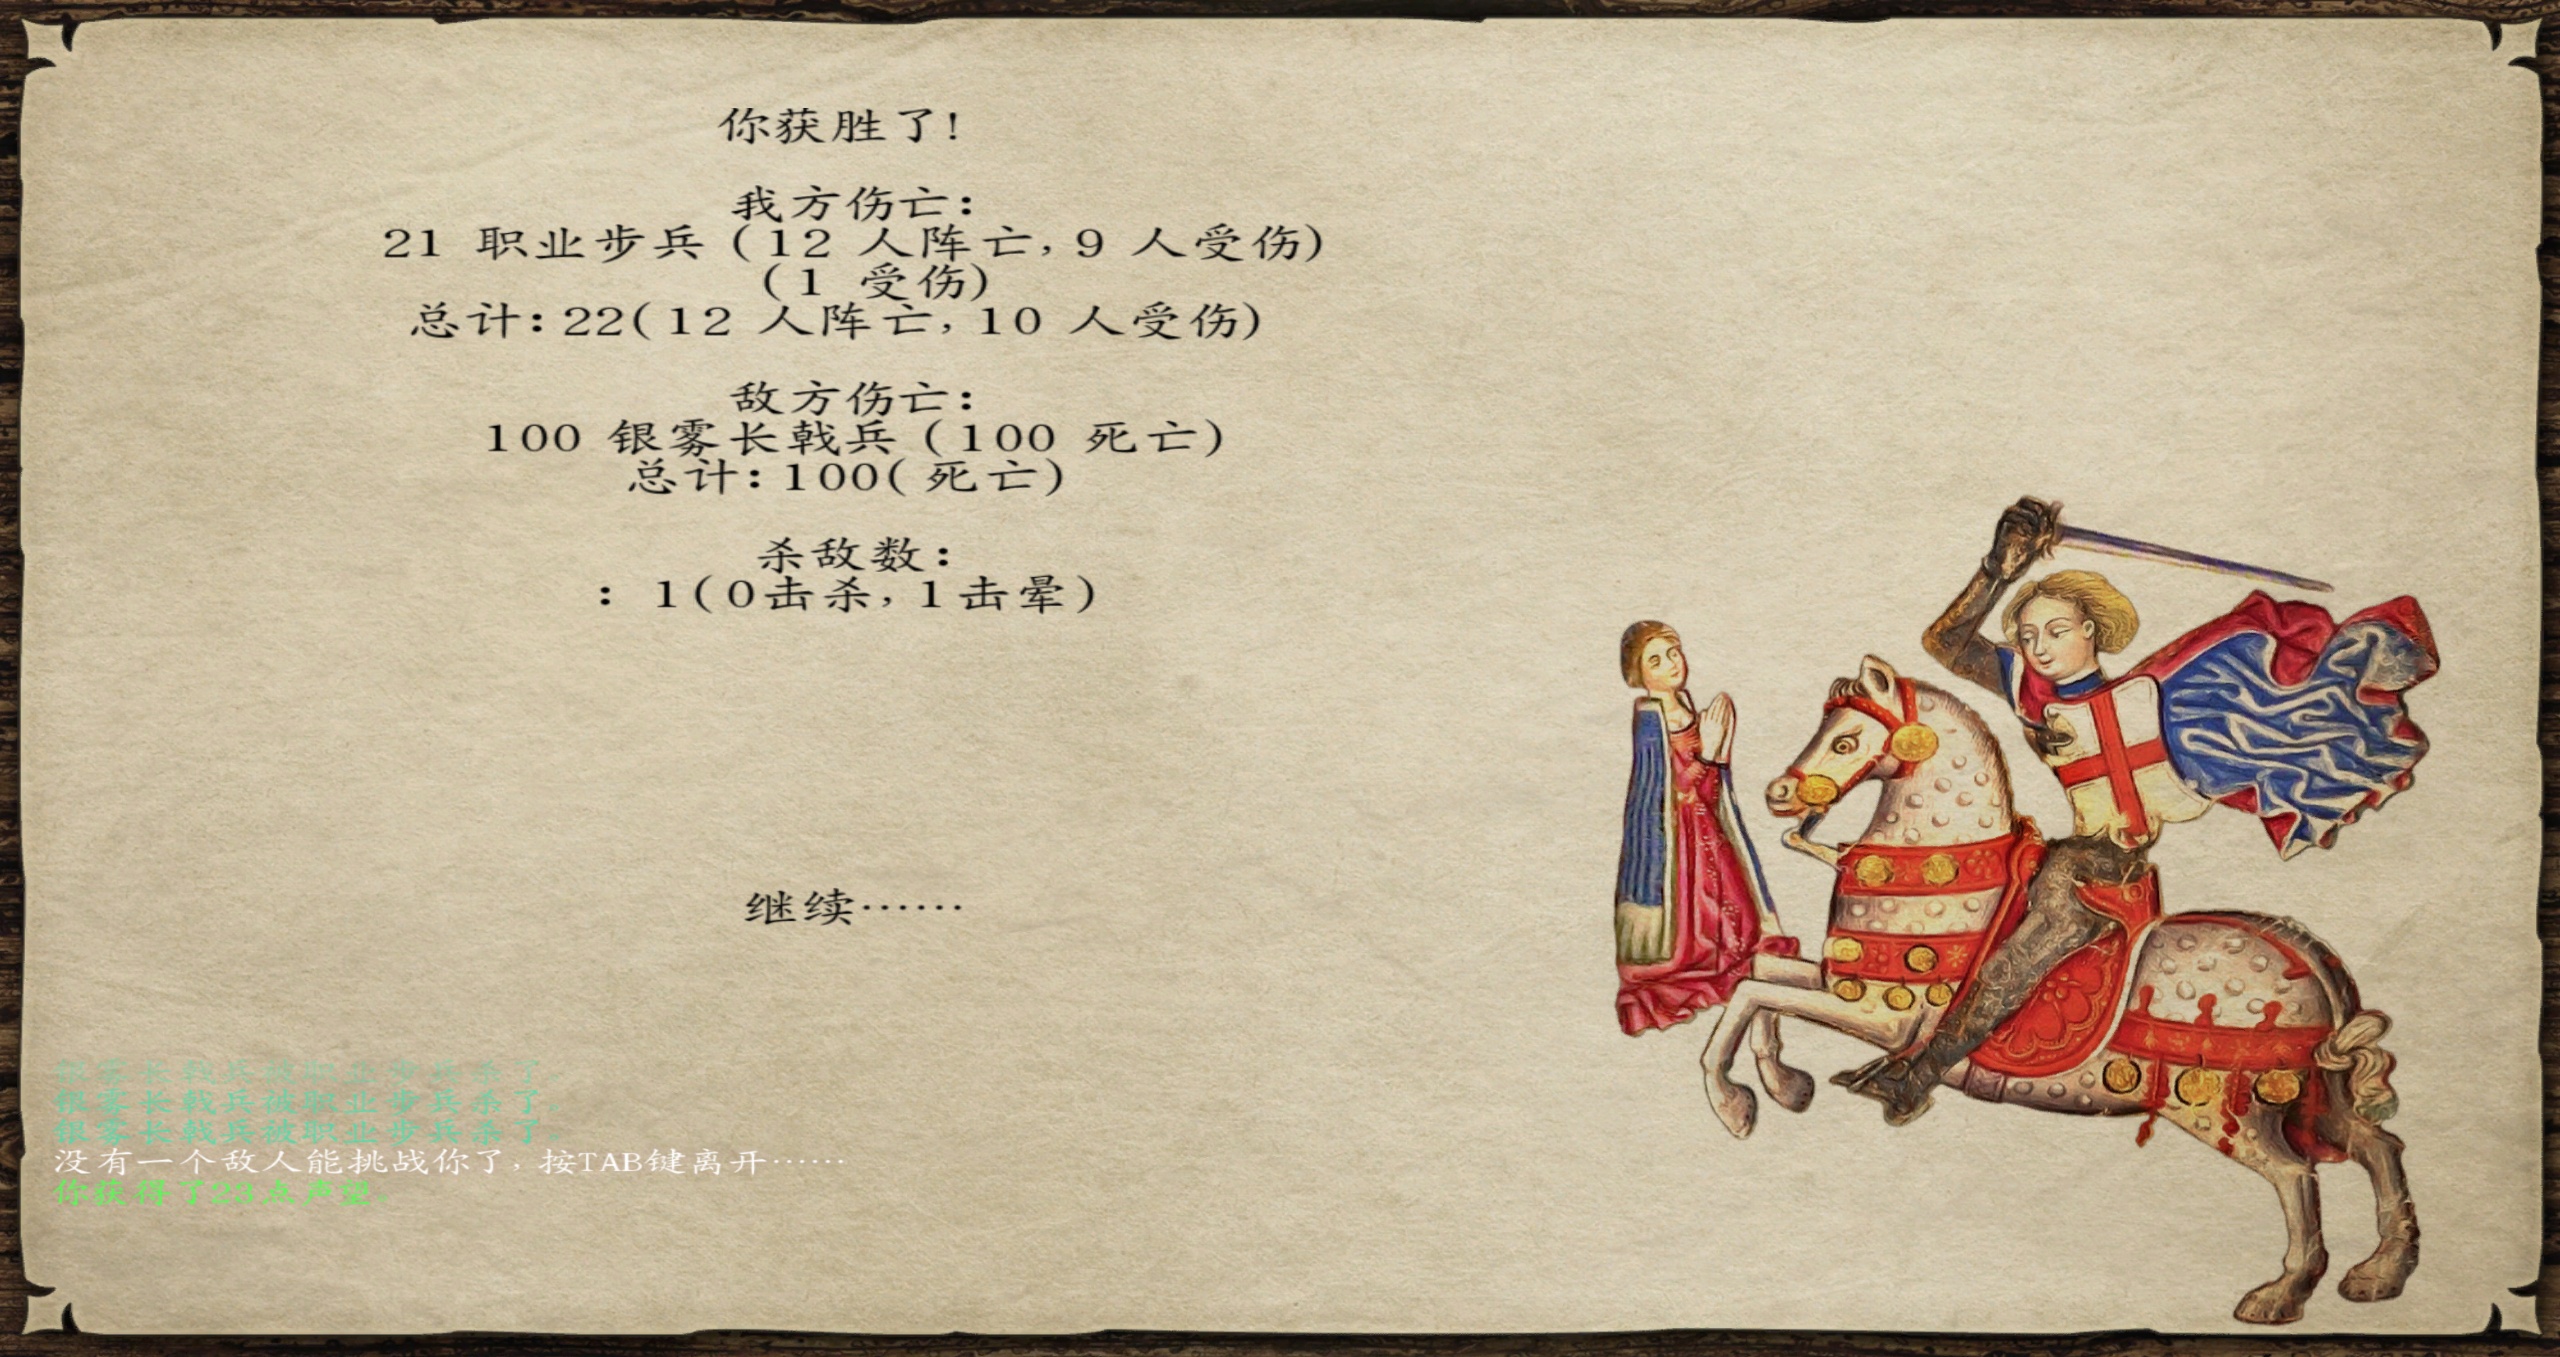 你获胜了!
我方伤亡:
21 职业步兵 (12 人阵亡, 9 人受伤)
(1 受伤)
总计: 22(12 人阵亡, 10 人受伤)
敌方伤亡:
100 银雾长戟兵 (100 死亡)
总计: 100( 死亡)
杀敌数:
: 1(0击杀, 1击晕)
继续……
银雾长戟兵被职业步兵杀了。
银雾长戟兵被职业步兵杀了。
银雾长戟兵被职业步兵杀了。
没有一个敌人能挑战你了, 按TAB键离开……
你获得了23点声望。